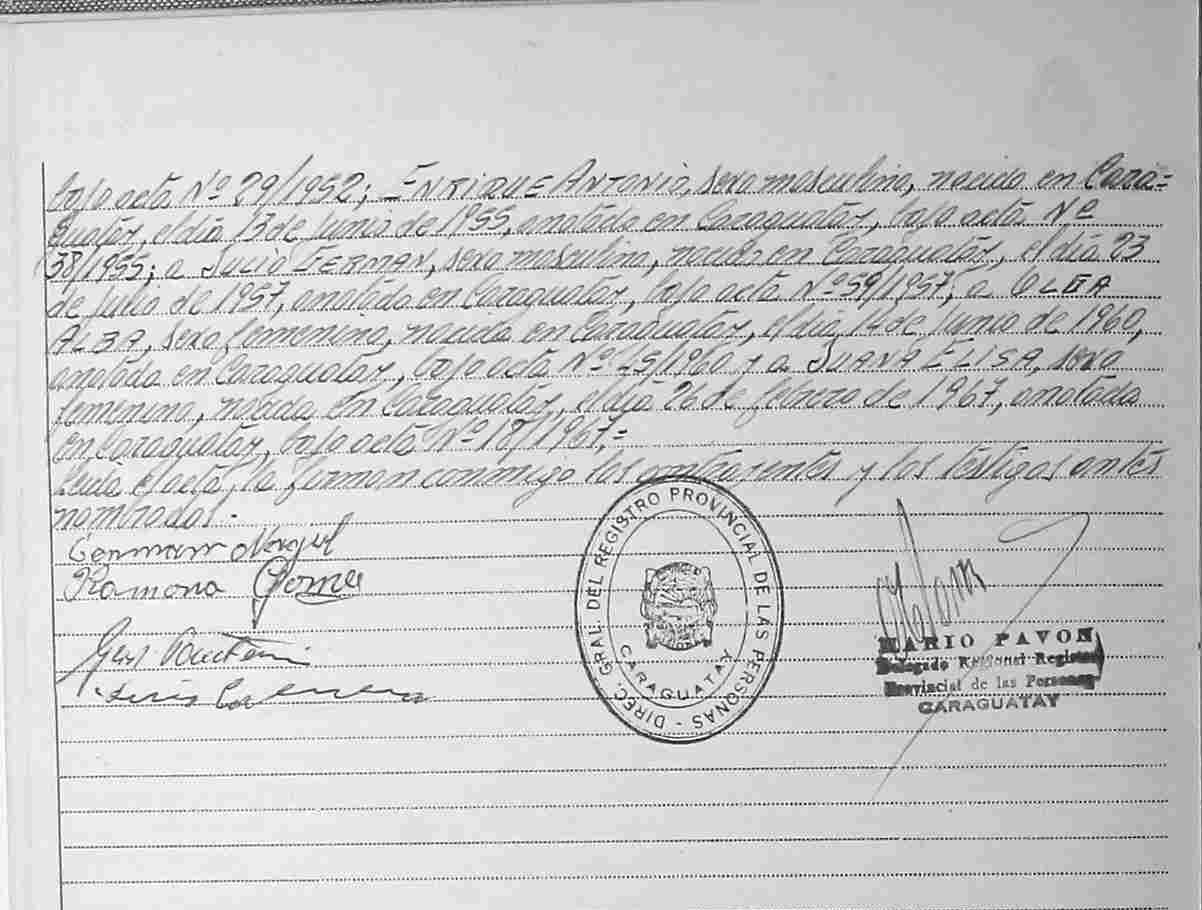 bajo acta Nº 29/1952; ENRIQUE ANTONIO, sexo masculino, nacido en Cara=
guatay, el día 13 de Junio de 1955, anotado en Caraguatay, bajo acta Nº
38/1955; a JULIO GERMAN, sexo masculino, nacido en Caraguatay, el día 23
de Junio de 1957, anotado en Caraguatay, bajo acta Nº 59/1957; a OLGA
ALBA, sexo femenino, nacida en Caraguatay, el día 14 de Junio de 1960,
anotada en Caraguatay, bajo acta Nº /1960 y a JUANA ELISA, sexo
femenino, nacida en Caraguatay, el día 26 de febrero de 1967, anotada
en Caraguatay, bajo acta Nº 18/1967,=
Leída el acta, la firman conmigo los contrayentes y los testigos antes
nombrados.-
Ramona Gomez
DIREC. GRAL. DEL REGISTRO PROVINCIAL DE LAS PERSONAS -
CARAGUATAY
MARIO PAVON
Delegado Regional Registro
Provincial de las Personas
CARAGUATAY